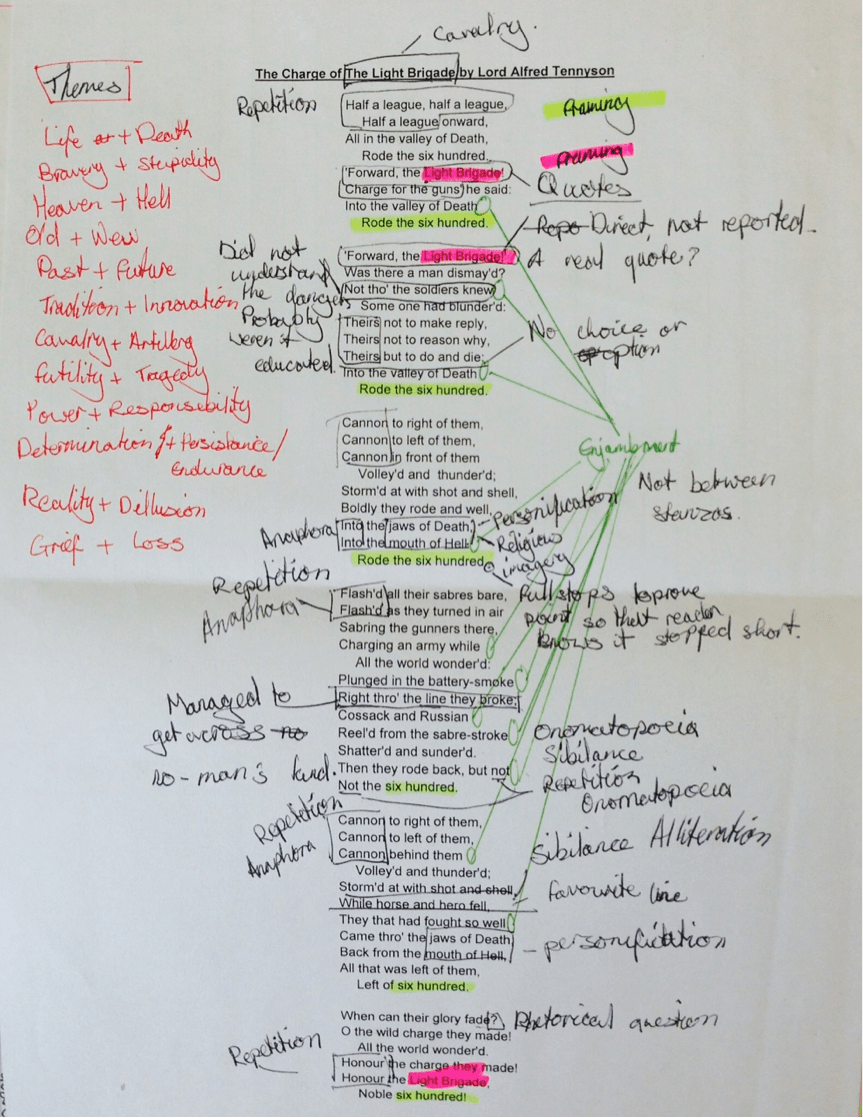 Cavalry.
The Charge of The Light Brigade by Lord Alfred Tennyson
Themes
Life + Death
Bravery + Stupidity
Heaven + Hell
Old + New
Past + Future
Tradition + Innovation
Cavalry + Artillery
Futility + Tragedy
Power + Responsibility
Determination + Persistance/
Endurance
Reality + Dillusion
Grief + Loss
Repetition
Half a league, half a league,
Half a league onward,
All in the valley of Death,
Rode the six hundred.
'Forward, the Light Brigade!
Charge for the guns' he said:
Into the valley of Death
Rode the six hundred.
Framing
Framing
Quotes
Direct, not reported.
A real quote?
'Forward, the Light Brigade!'
Was there a man dismay'd?
Not tho' the soldiers knew
Some one had blunder'd:
Theirs not to make reply,
Theirs not to reason why,
Theirs but to do and die:
Into the valley of Death
Rode the six hundred.
Did not
understand
the dangers
Probably
weren't
educated.
No choice or
option
Cannon to right of them,
Cannon to left of them,
Cannon in front of them
Volley'd and thunder'd;
Storm'd at with shot and shell,
Boldly they rode and well,
Into the jaws of Death,
Into the mouth of Hell
Rode the six hundred.
Enjambment
Not between
stanzas.
Anaphora
Personification
Religious
imagery
Repetition
Anaphora
Flash'd all their sabres bare,
Flash'd as they turned in air
Sabring the gunners there,
Charging an army while
All the world wonder'd:
Plunged in the battery-smoke
Right thro' the line they broke;
Cossack and Russian
Reel'd from the sabre-stroke
Shatter'd and sunder'd.
Then they rode back, but not
Not the six hundred.
Full stops to prove
point so that reader
knows it stopped short.
Managed to
get across
no-man's land.
Onomatopoeia
Sibilance
Repetition
Onomatopoeia
Repetition
Anaphora
Cannon to right of them,
Cannon to left of them,
Cannon behind them
Volley'd and thunder'd;
Storm'd at with shot and shell,
While horse and hero fell,
They that had fought so well
Came thro' the jaws of Death
Back from the mouth of Hell,
All that was left of them,
Left of six hundred.
Sibilance Alliteration
favourite line
- personification
When can their glory fade?
O the wild charge they made!
All the world wonder'd.
Honour the charge they made!
Honour the Light Brigade,
Noble six hundred!
Rhetorical question
Repetition